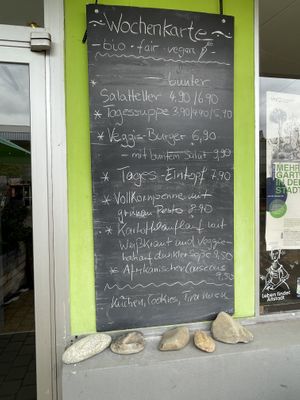 Wochenkarte
- bio - fair - vegan
bunter
Salatteller 4.90/6.90
* Tagessuppe 3.90/4.90/5.90
* Veggie-Burger 6,90
- mit buntem Salat 9,90
* Tages-Eintopf 7.90
* Vollkornpenne mit
grünem Pesto 8.90
* Kartoffelauflauf mit
Weißkraut und Veggie-
dunkler soße 9.50
* Afrikanischer Couscous
9,50
Kuchen, Cookies, Tiramisu
MEHR
GARTEN
IN DER
STADT
Leben findet